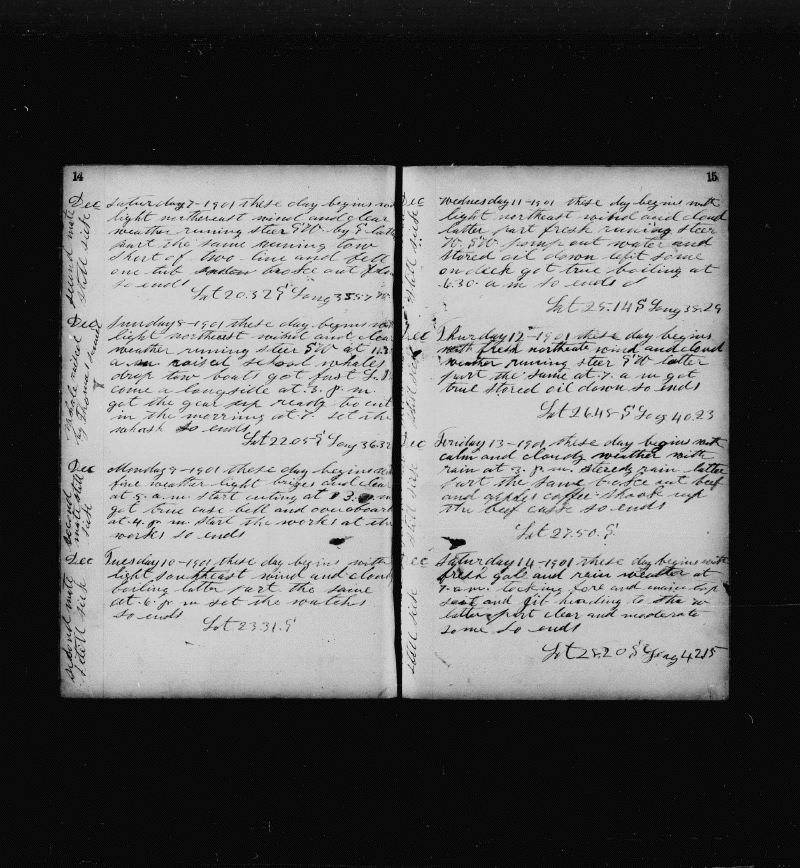 14
Dec Saturday 7-1901 these day begins with
light northereast wind and clear
weather runing steer SW by S latter
part the same runing tow
short of two-line and fell
one tub broke out
so ends
Lat 20.32 S Long 35.57
second mate
still sick
Dec Sunday 8-1901 these day begins with
light northeast wind and clear
weather runing steer SW at
a.m raised school whales
drop tow boats got fast
come a longside at 3. p.m
got the gear up ready to cut
in the morring at 7. set the
whash so ends
Lat 22.05 S Long 36.32
whale raised
by Thomas
Dec Monday 9-1901 these day begins
fine weather light brizes and clear
at 5. a.m. start cuting at 3. p.m
got true case bell and overboard
at 4. p.m. start the works at the
works so ends
second
mate still
sick
Dec Tuesday 10-1901 these day begins with
light southeast wind and cloud
boiling latter part the same
at 6. p.m set the watches
so ends
Lat 23.31. S
second mate
still sick
15
Dec Wednesday 11-1901 these day begins with
light northeast wind and cloud
latter part fresh runing steer
W. SW pomp out water and
stored oil down left some
on deck got true boiling at
6.30. a.m so ends
Lat 25.14 S Long 38.29
still sick
Dec Thurday 12-1901 these day begins
with fresh northeate wind and cloud
weather runing steer SW latter
part the same at 7. a.m got
true stored oil down so ends
Lat 26.48-S Long 40.23
still sick
Dec Friday 13-1901 these day begins with
calm and cloudy weather with
rain at 3. p.m. stered rain latter
part the same broke out beef
and coffee shook up
the beef caske so ends
Lat 27.50. S
still sick
Dec Saturday 14-1901 these day begins with
fresh gale and rain weather at
7. a.m. fore and main top
and jit heading to the w
latter part clear and moderate
some so ends
Lat 28.20 S Long 42.15
still sick